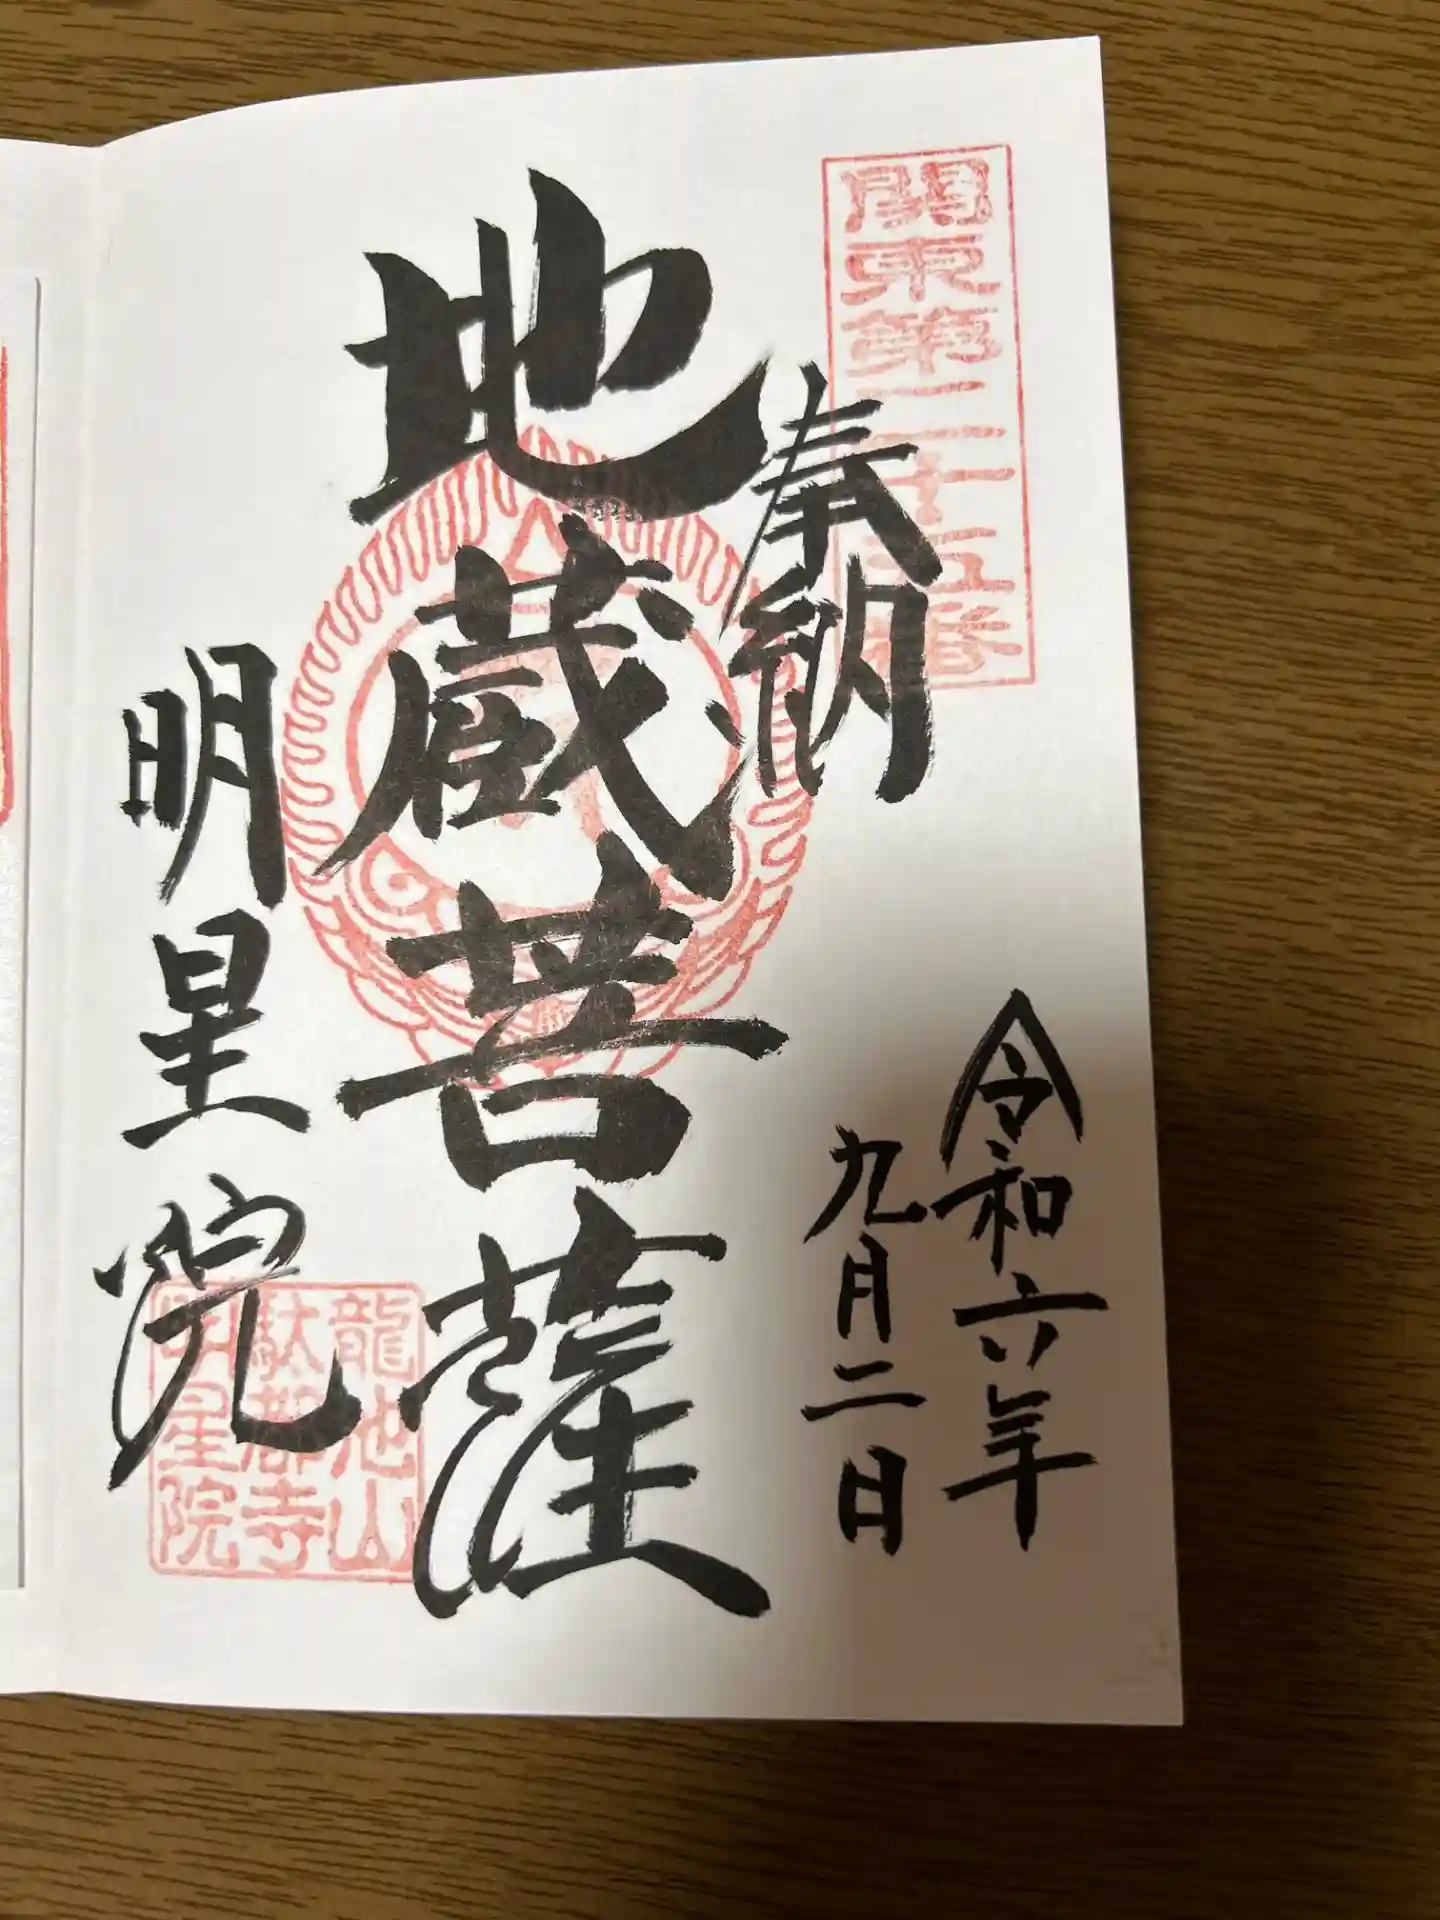 関東第三十五番
奉納
令和六年
九月二日
地蔵菩薩
明星院
龍池山
駄都寺
明星院